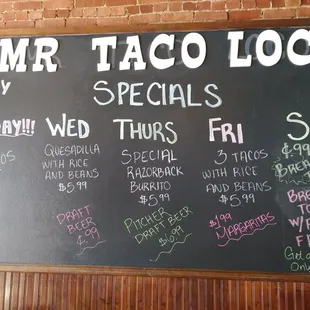 MR TACO LOC
Y
SPECIALS
AY!!!
OS
WED
QUESADILLA
WITH RICE
AND BEANS
$5.99
DRAFT
BEER
THURS
SPECIAL
RAZORBACK
BURRITO
$5.99
PITCHER
DRAFT BEER
$6.99
FRI
3 TACOS
WITH RICE
AND BEANS
$5.99
$1.99
MARGARITAS
S
¢99
BRE
BRE
TO
W/
F
Get
Onl